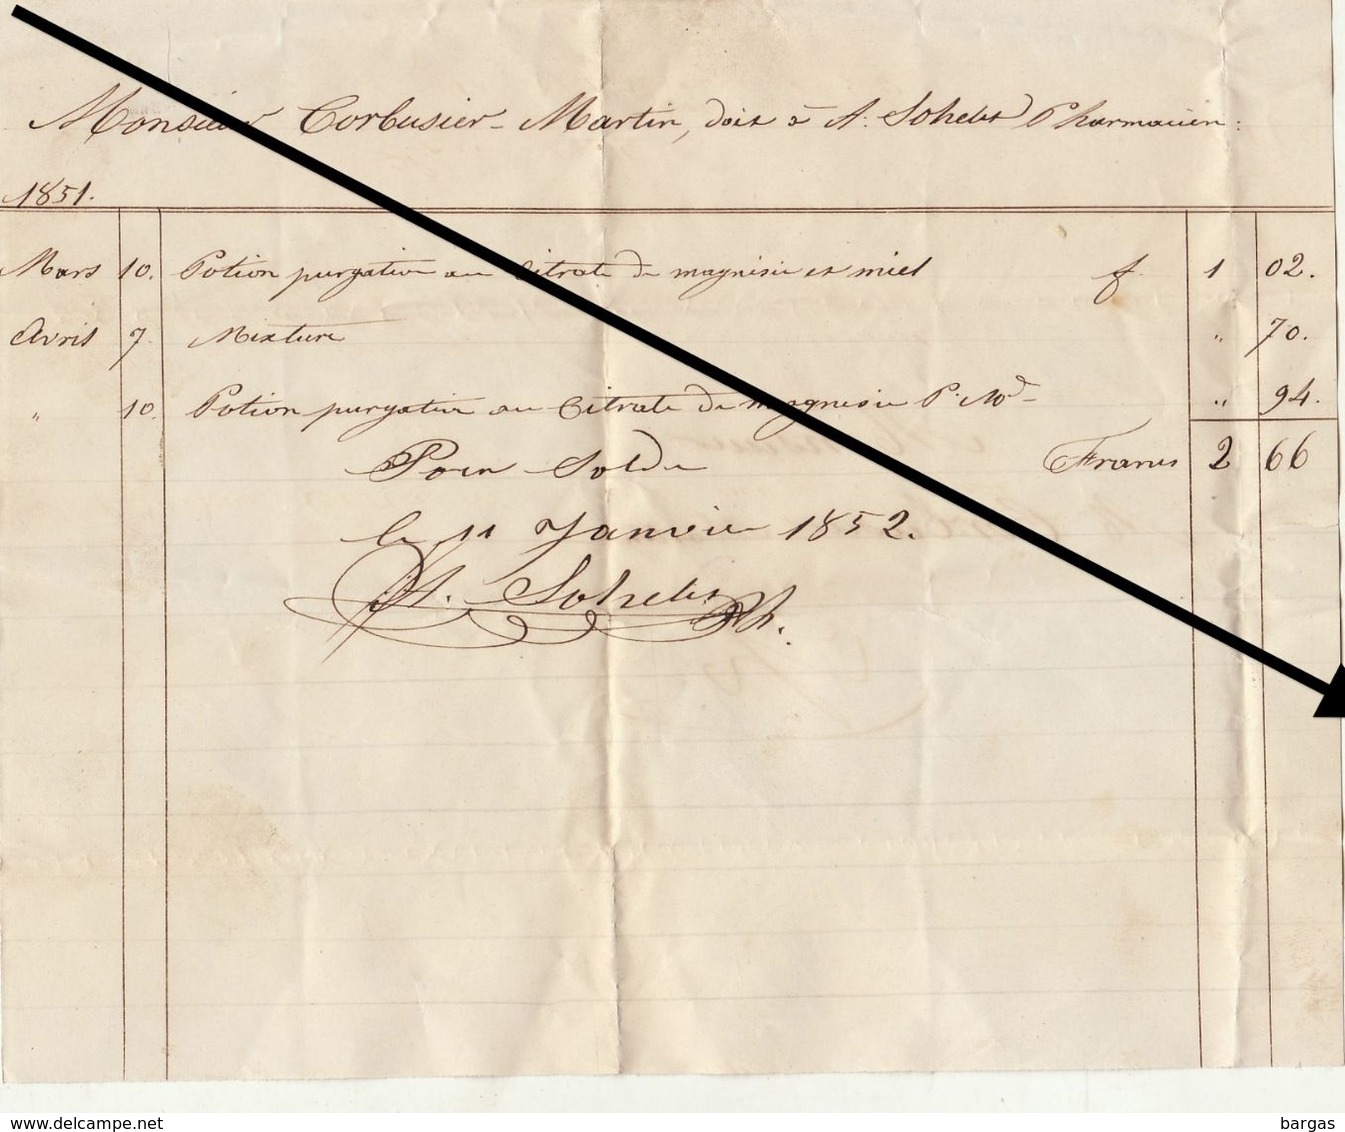 Monsieur Corbusier-Martin, doit à A. Sohelet Pharmacien:
1851.
Mars 10. Potion purgative au Citrate de magnésie et miel f. 1 02.
Avril 7. Mixture " 70.
" 10. Potion purgative au Citrate de magnésie P. Md " 94.
Pour Solde Francs 2 66
le 11 Janvier 1852.
A. Sohelet Ph.
www.delcampe.net bargas